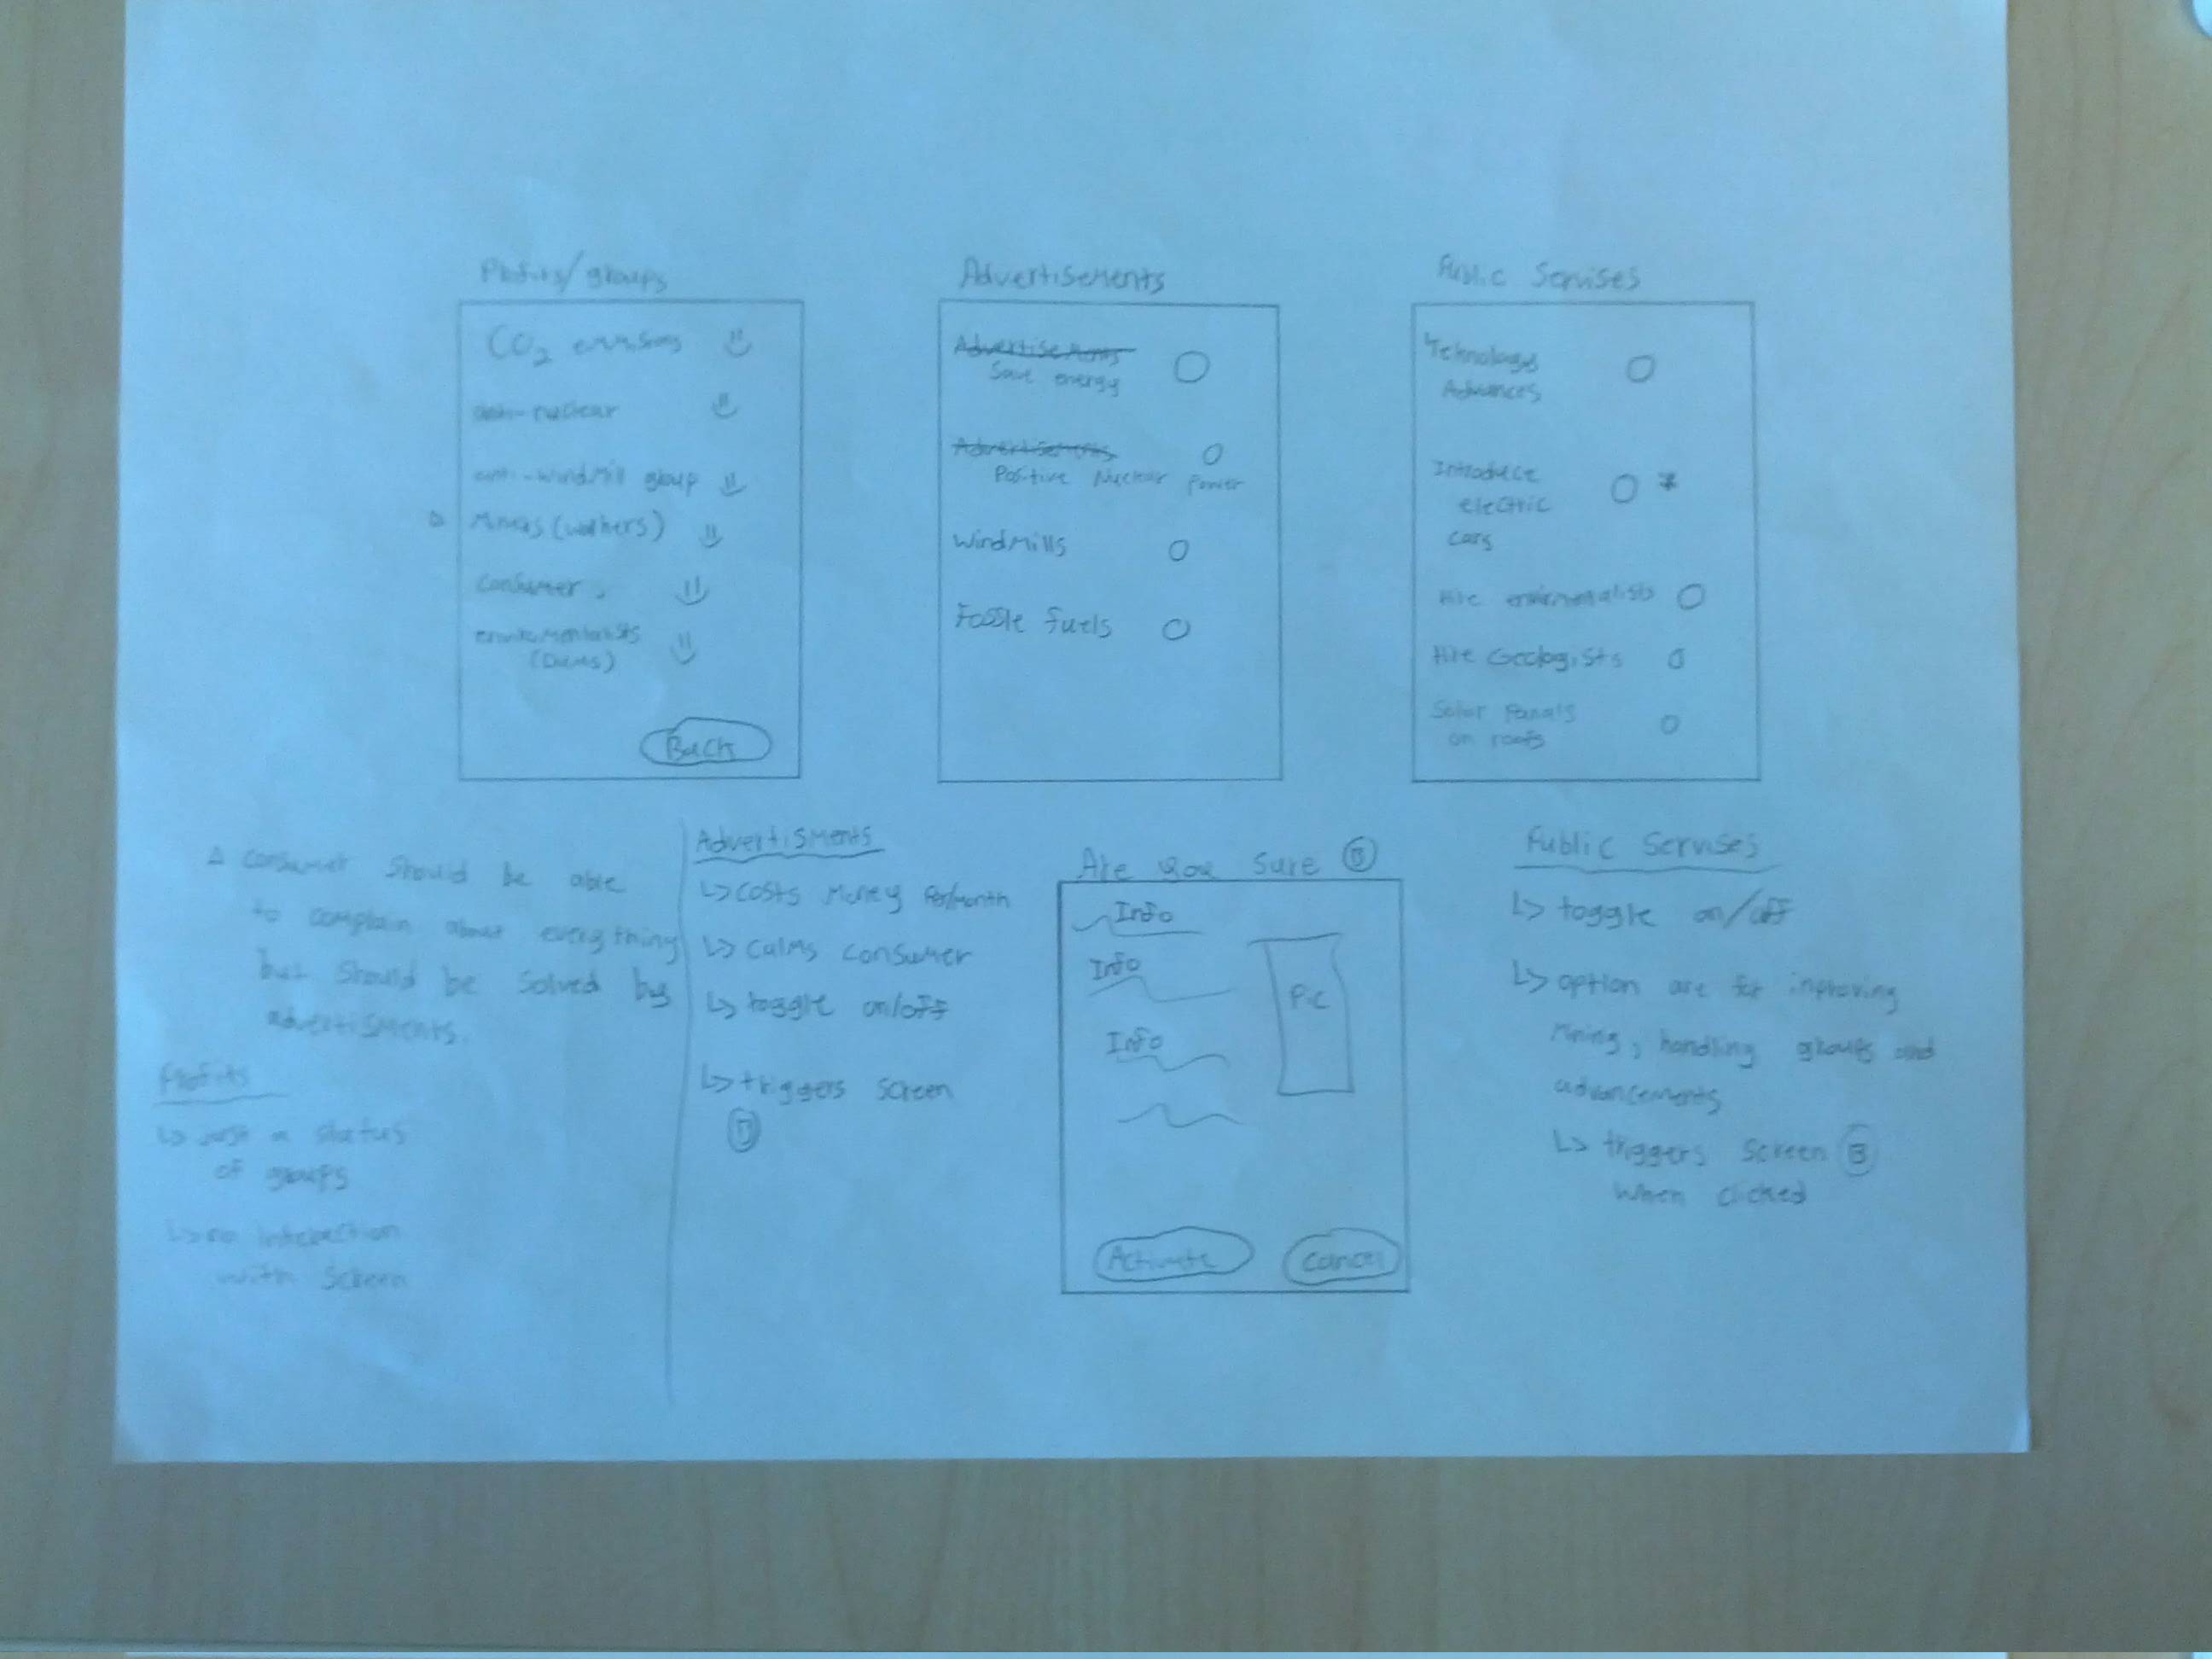 Profits/groups
CO2 emissions
anti-nuclear
anti-windmill group
(workers)
consumer
(Dams)
Back
Advertisements
Advertisements
Save energy
Advertisements
Positive Nuclear Power
Windmills
Fossle fuels
Public Servises
Advances
Introduce
electric
cars
Hire
Hire Geologists
Solar Panals
on roofs
Δ consumer should be able
to complain about everything
but should be solved by
advertisments.
Profits
↳ just a status
of groups
↳ no interaction
with screen
Advertisments
↳ costs money per/month
↳ calms consumer
↳ toggle on/off
↳ triggers screen
Are you sure B
Info
Info
Info
Pic
Activate
Cancel
Public Servises
↳ toggle on/off
↳ option are for inproving
mining, handling groups and
advancements
↳ triggers screen B
when clicked